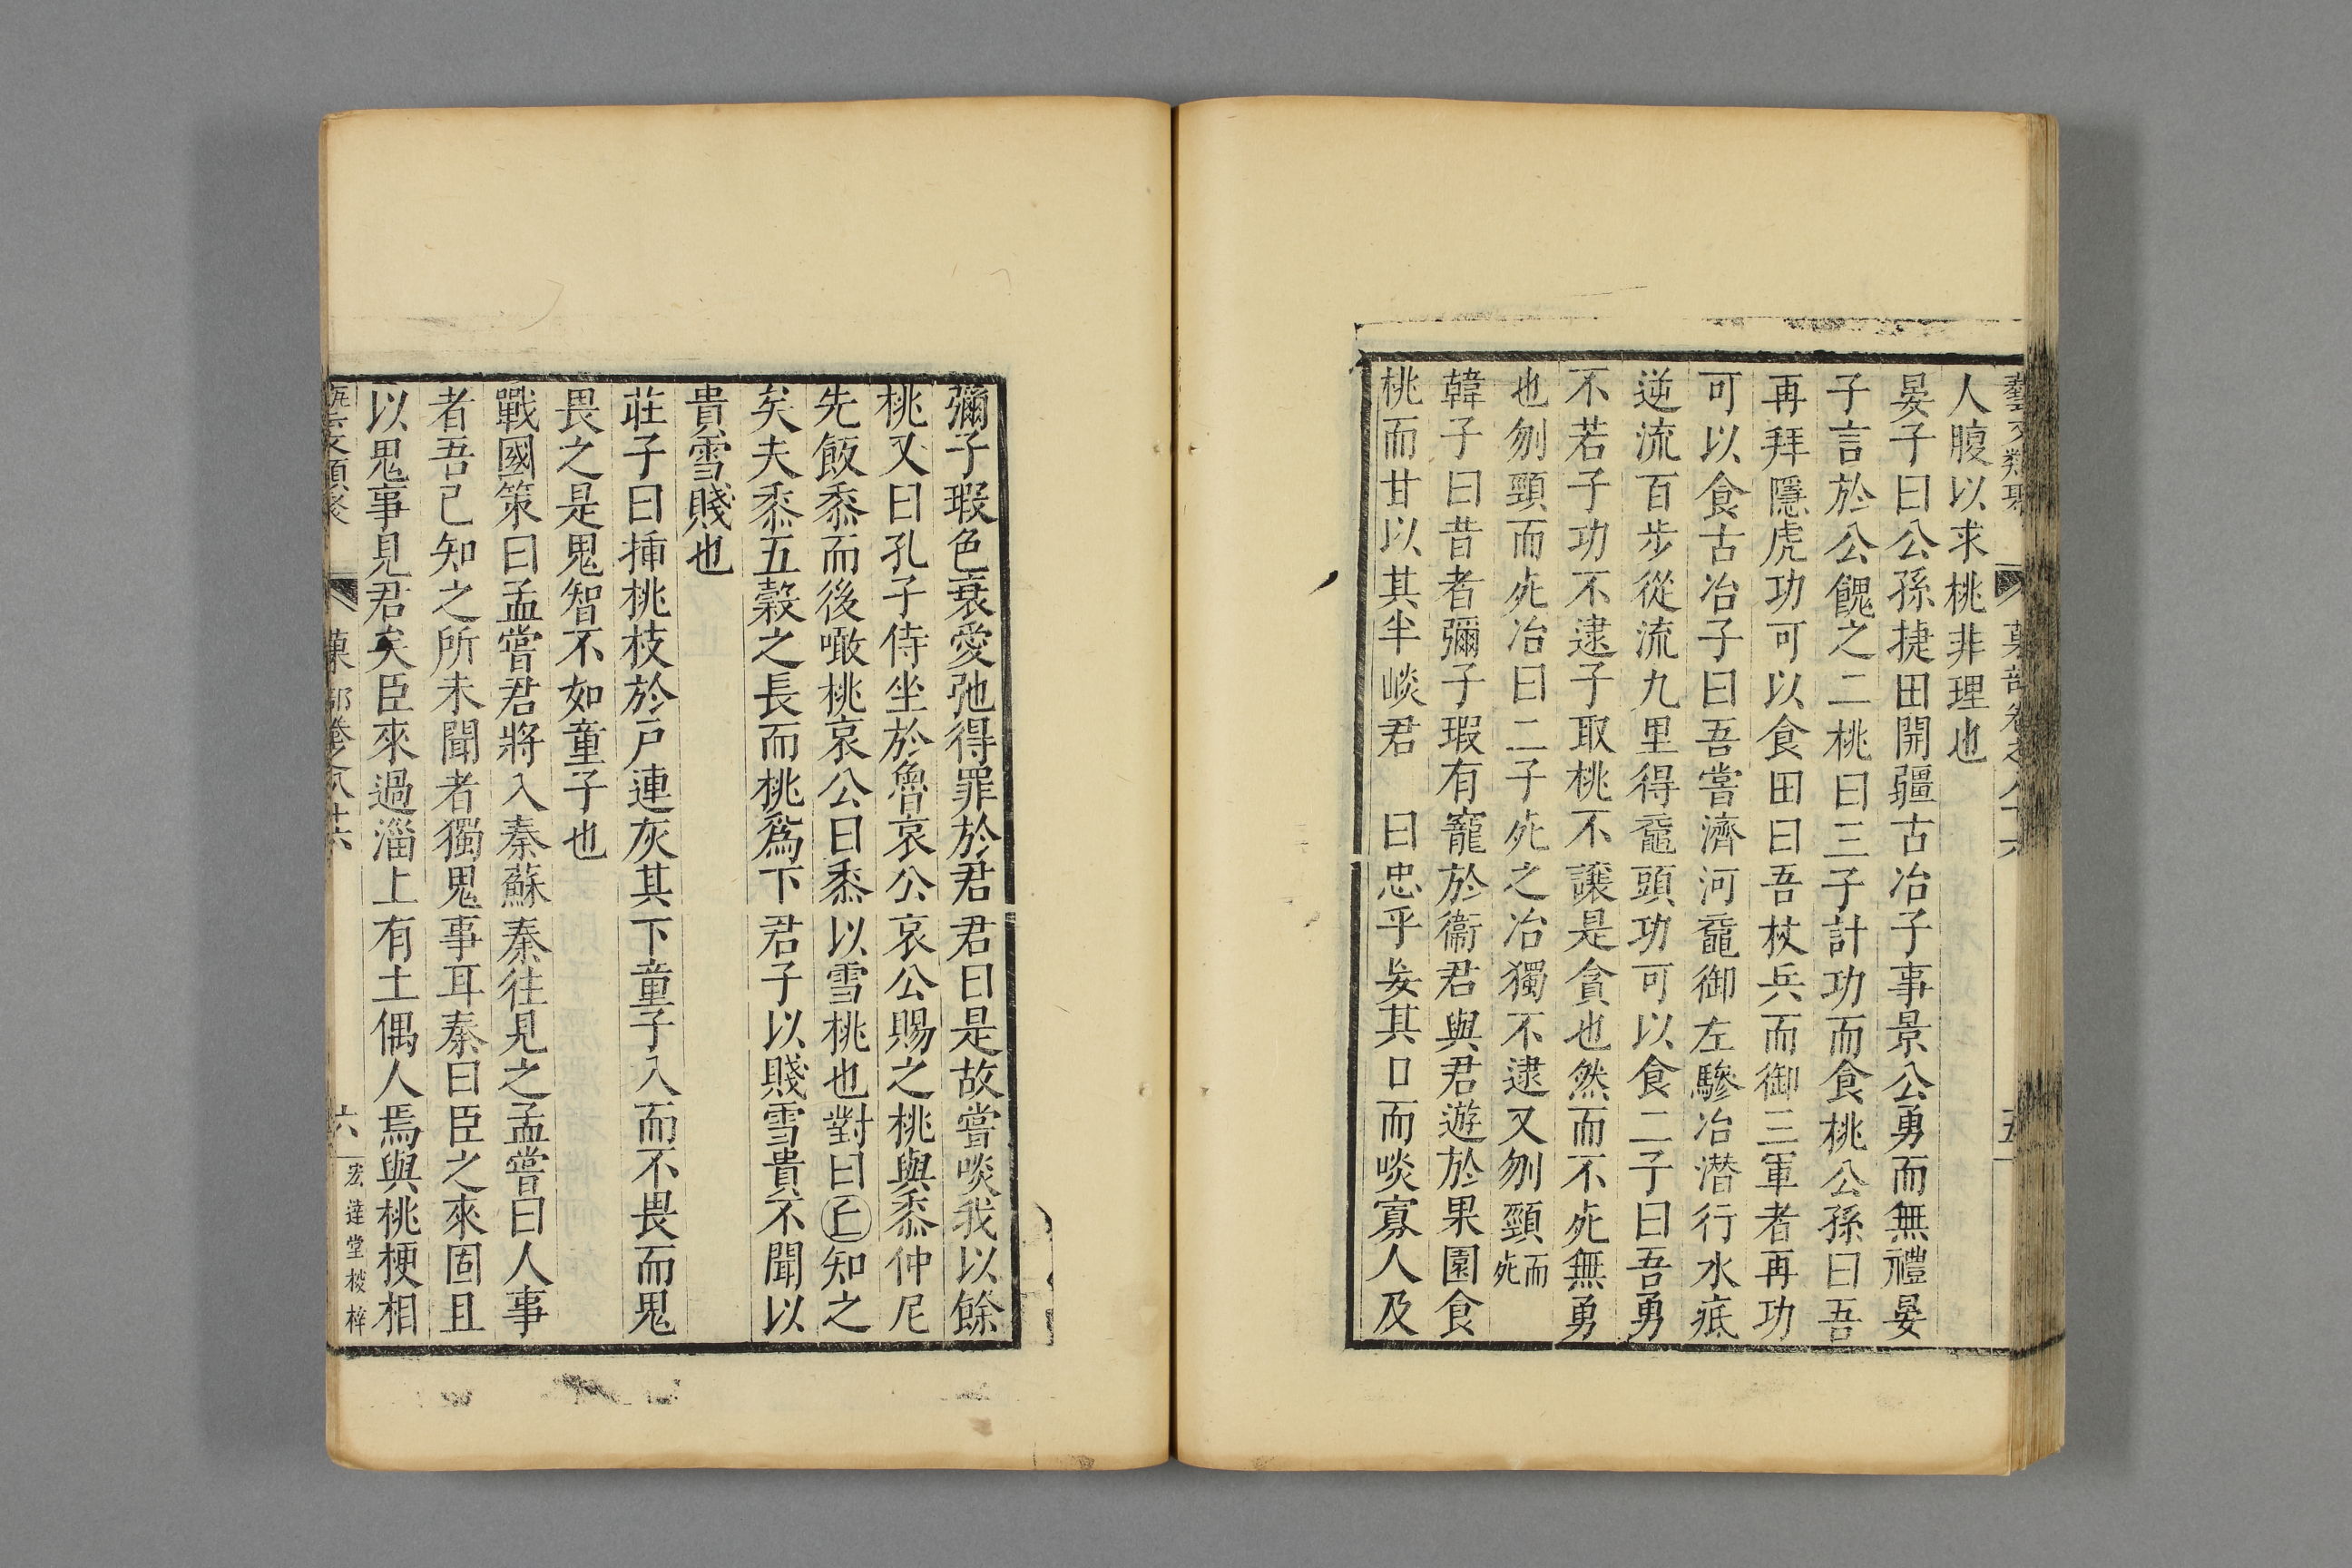 藝文類聚 菓部卷之八十六 五
人腹以求桃非理也
晏子曰公孫捷田開疆古冶子事景公勇而無禮晏
子言於公餽之二桃曰三子計功而食桃公孫曰吾
再拜隱虎功可以食田曰吾杖兵而御三軍者再功
可以食古冶子曰吾嘗濟河黿御左驂冶潜行水底
逆流百步從流九里得黿頭功可以食二子曰吾勇
不若子功不逮子取桃不讓是貪也然而不死無勇
也刎頸而死冶曰二子死之冶獨不逮又刎頸而死
韓子曰昔者彌子瑕有寵於衞君與君遊於果園食
桃而甘以其半啖君 曰忠乎妄其口而啖寡人及
彌子瑕色衰愛弛得罪於君君曰是故嘗啖我以餘
桃又曰孔子侍坐於魯哀公哀公賜之桃與黍仲尼
先飯黍而後噉桃哀公曰黍以雪桃也對曰丘知之
矣夫黍五穀之長而桃爲下君子以賤雪貴不聞以
貴雪賤也
莊子曰揷桃枝於戸連灰其下童子入而不畏而鬼
畏之是鬼智不如童子也
戰國策曰孟嘗君將入秦蘇秦往見之孟嘗曰人事
者吾已知之所未聞者獨鬼事耳秦曰臣之來固且
以鬼事見君矣臣來過淄上有土偶人焉與桃梗相
藝文類聚 菓部卷之八十六 六 宏達堂校梓